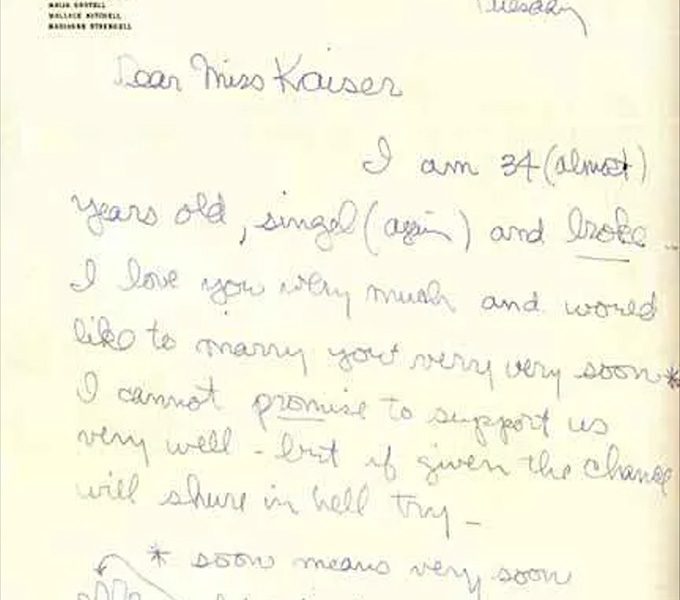 MAIJA GROTELL
WALLACE MITCHELL
MARIANNE STRENGELL
Tuesday
Dear Miss Kaiser
I am 34 (almost)
years old, singel (again) and broke
I love you very much and would
like to marry you very very soon *
I cannot promise to support us
very well - but if given the chance
will shure in hell try -
* soon means very soon